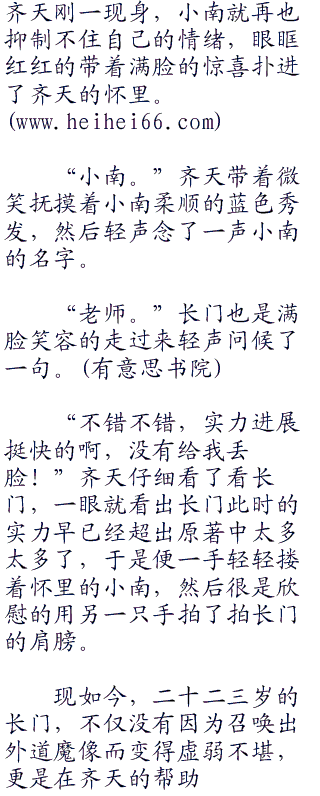 齐天刚一现身，小南就再也
抑制不住自己的情绪，眼眶
红红的带着满脸的惊喜扑进
了齐天的怀里。
(www.heihei66.com)
“小南。”齐天带着微
笑抚摸着小南柔顺的蓝色秀
发，然后轻声念了一声小南
的名字。
“老师。”长门也是满
脸笑容的走过来轻声问候了
一句。(有意思书院)
“不错不错，实力进展
挺快的啊，没有给我丢
脸！”齐天仔细看了看长
门，一眼就看出长门此时的
实力早已经超出原著中太多
太多了，于是便一手轻轻搂
着怀里的小南，然后很是欣
慰的用另一只手拍了拍长门
的肩膀。
现如今，二十二三岁的
长门，不仅没有因为召唤出
外道魔像而变得虚弱不堪，
更是在齐天的帮助